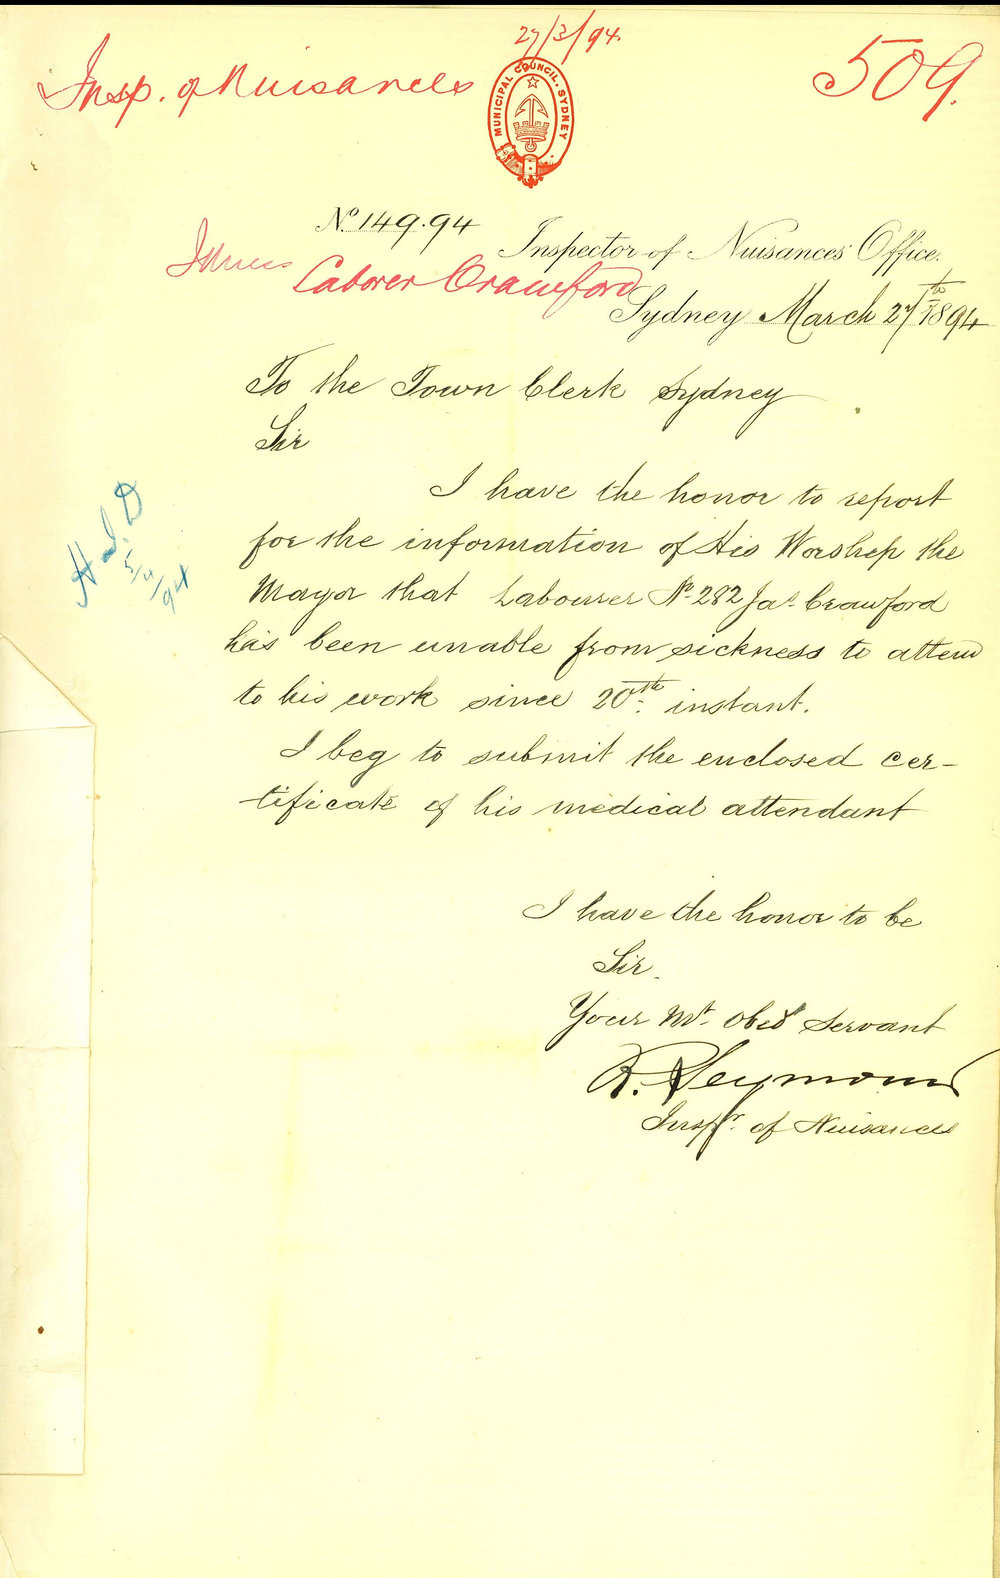 27/3/94.
Insp. of Nuisances
509.
MUNICIPAL COUNCIL. SYDNEY
No. 149.94
Inspector of Nuisances' Office.
James
Laborer Crawford
Sydney March 27th 1894
To the Town Clerk Sydney
Sir
I have the honor to report
for the information of His Worship the
Mayor that Labourer No. 282 Jas. Crawford
has been unable from sickness to attend
to his work since 20th instant.
I beg to submit the enclosed cer-
tificate of his medical attendant
5/4/94
I have the honor to be
Sir.
Your Mt. Obed Servant
R. Seymour
Inspr. of Nuisances